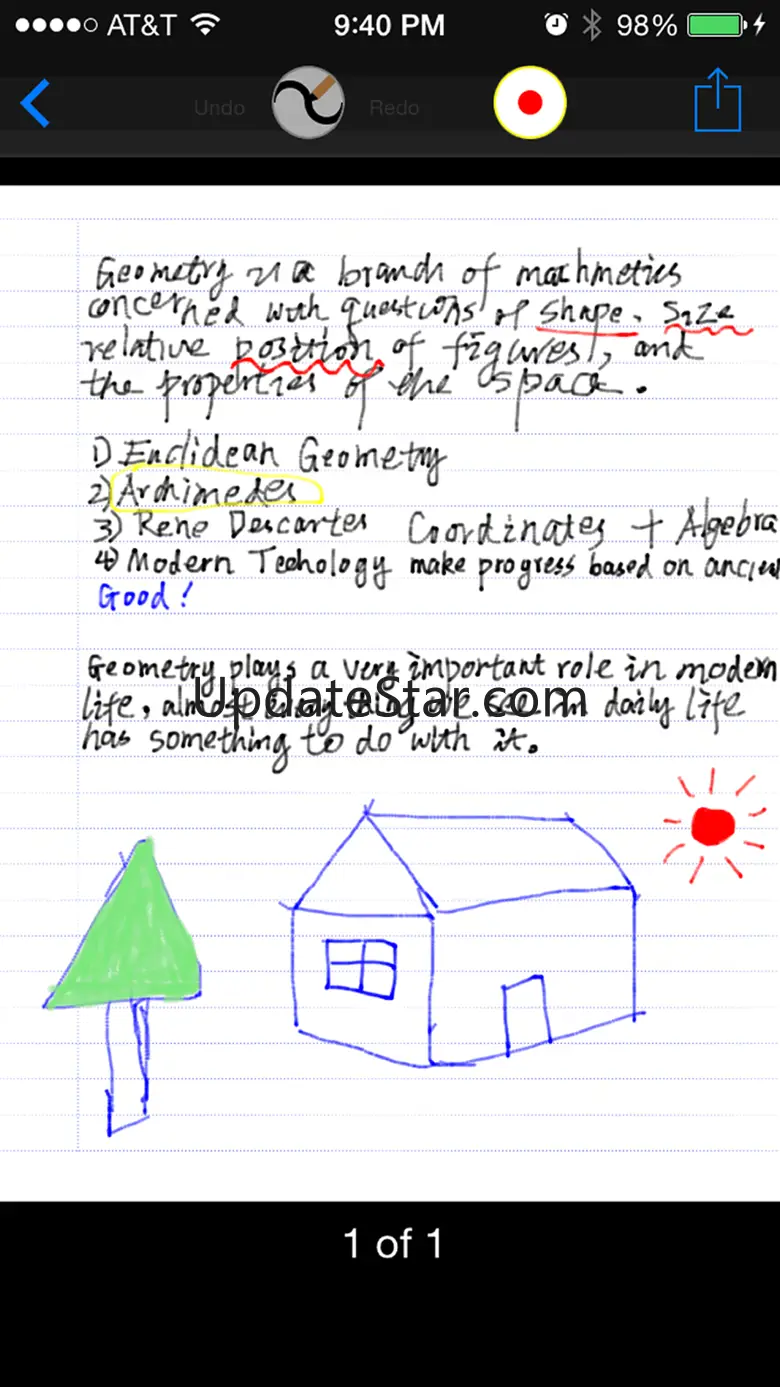 AT&T 9:40 PM 98%
Undo Redo
Geometry is a branch of machmetics
concerned with questions of shape, size
relative position of figures, and
the properties of the space.
1) Euclidean Geometry
2) Archimedes
3) Rene Descartes Coordinates + Algebra
4) Modern Techology make progress based on ancien
Good!
Geometry plays a very important role in modern
life, almost everything we see in daily life
UpdateStar.com
has something to do with it.
1 of 1